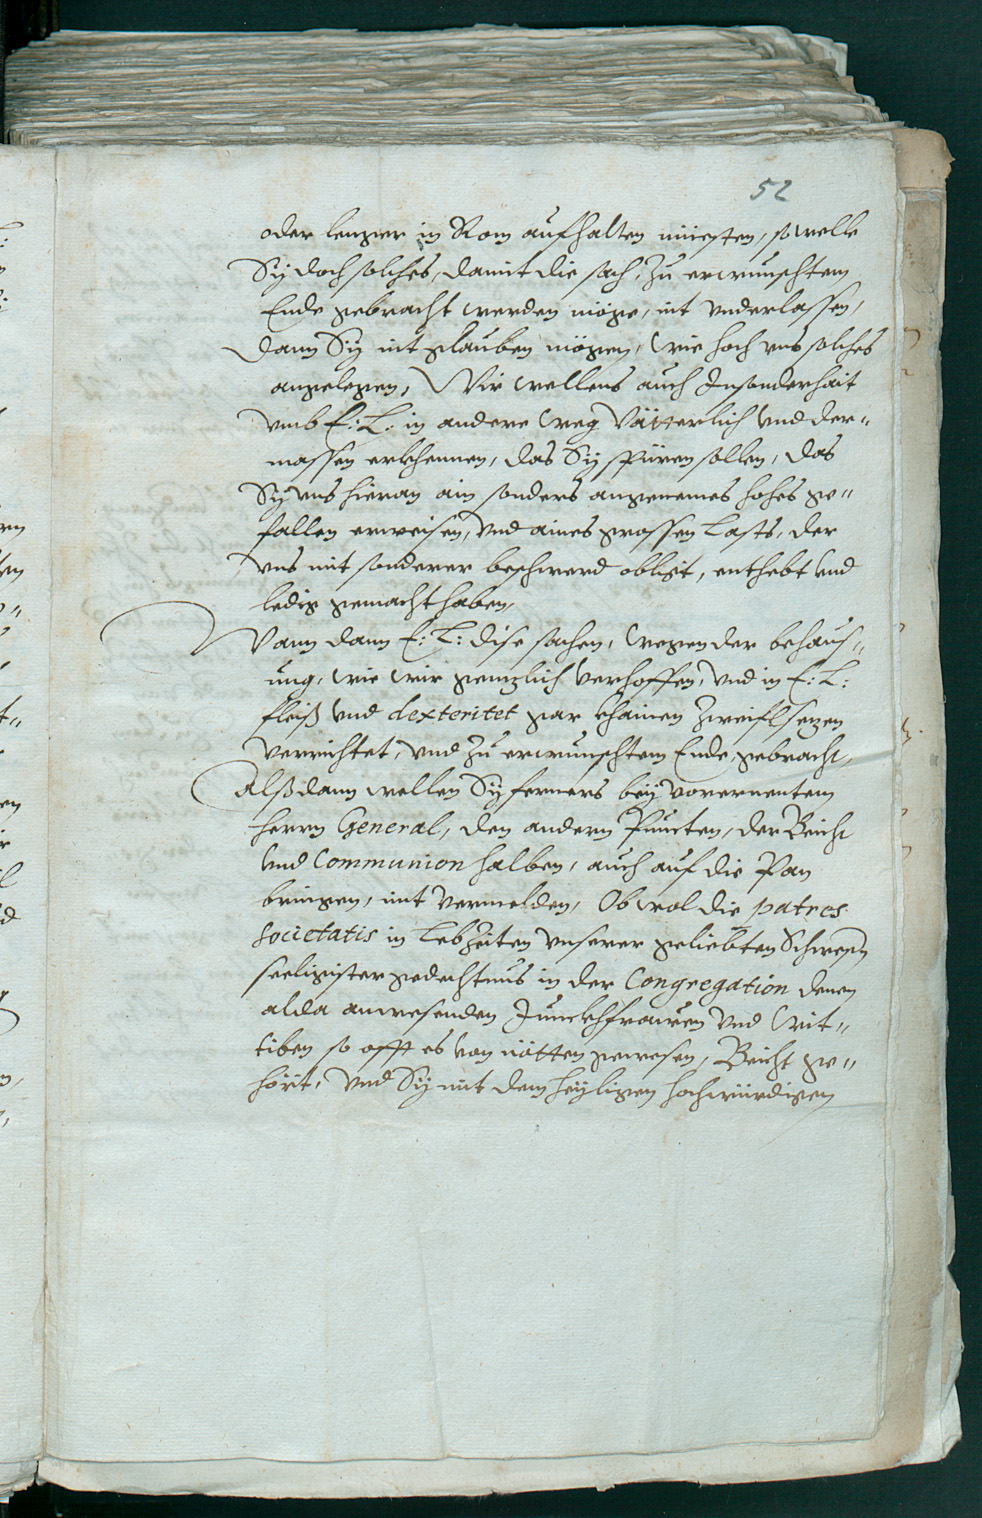 52
oder lenger in Rom aufhalten müesten, so welle
Sy doch solches, damit die sach, zu erwunschtem
Ende gebracht werden möge, nit vnderlassen,
dann Sy nit glauben mögen, wie hoch vns solches
angelegen, Wir wellens auch Insonderhait
vmb E: L: in andere weg Vätterlich vnd der„
massen erkhennen, das Sy spüren sollen, das
Sy vns hieran ain sonders angenemes hohes ge„
fallen erweisen, vnd aines grossen Lasts, der
vns mit sonderer beschwerd obligt, enthebt vnd
ledig gemacht haben,
Wann dann E: L: dise sachen, wegen der behaus„
ung, wie wir gentzlich verhoffen, vnd in E: L:
fleiß vnd dexteritet gar khainen Zweifl setzen
verrichtet, vnd zu erwunschtem Ende, gebracht,
Alßdann wellen Sy ferners bey vorernentem
herrn General, den andern Puncten, der Beicht
vnd Communion halben, auch auf die Pan
bringen, mit vermelden, Obwol die patres
societatis in Lebzeiten vnserer geliebten Schwester
seeligister gedechtnus in der Congregation denen
alda anwesenden Junckhfrawen vnd Wit„
tiben so offt es von nötten gewesen, Beicht ge„
hört, vnd Sy mit dem heyligen hochwürdigen